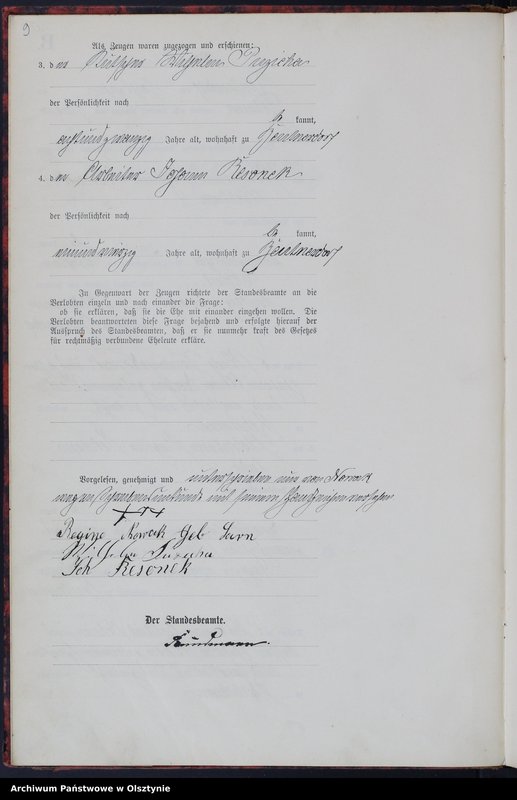 9
Als Zeugen waren zugezogen und erschienen:
3. den Wilhelm
der Persönlichkeit nach
be kannt,
achtundzwanzig Jahre alt, wohnhaft zu Zentnerdorf
4. den Arbeiter Johann Resonek
der Persönlichkeit nach
be kannt,
neunundvierzig Jahre alt, wohnhaft zu Zentnerdorf
In Gegenwart der Zeugen richtete der Standesbeamte an die
Verlobten einzeln und nach einander die Frage:
ob sie erklären, daß sie die Ehe mit einander eingehen wollen. Die
Verlobten beantworteten diese Frage bejahend und erfolgte hierauf der
Ausspruch des Standesbeamten, daß er sie nunmehr kraft des Gesetzes
für rechtmäßig verbundene Eheleute erkläre.
Vorgelesen, genehmigt und unterschrieben und von Nowak
wegen Schreibensunkunde mit seinem Handzeichen versehen
+++
Regine Nowak geb
Wilhelm
Joh Resonek
Der Standesbeamte.
Archiwum Państwowe w Olsztynie